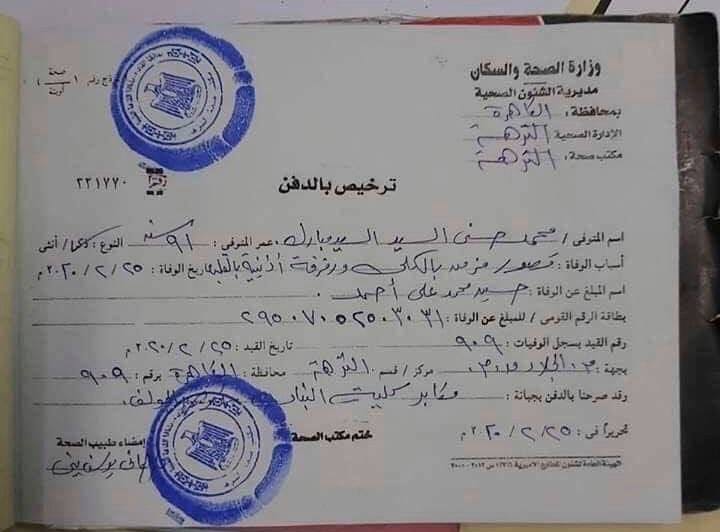 وزارة الصحة والسكان
مديرية الشئون الصحية
بمحافظة : القاهرة
الإدارة الصحية النزهة
مكتب صحة : النزهة
صحة
٢٢١٧٧٠
ترخيص بالدفن
اسم المتوفى / محمد حسنى السيد السيد مبارك عمر المتوفى : ٩١ سنة النوع : ذكر / أنثى
أسباب الوفاة : قصور مزمن بالكلى ورفرفة أذنية بالقلب تاريخ الوفاة : ٢٥ / ٢ / ٢٠٢٠ م
اسم المبلغ عن الوفاة : حسيد محمد على أحمد
بطاقة الرقم القومى / للمبلغ عن الوفاة :
رقم القيد بسجل الوفيات : ٩٠٩ تاريخ القيد : ٢٥ / ٢ / ٢٠٢٠ م
بجهة : م. الجلاء مركز / قسم النزهة محافظة : القاهرة برقم : ٩٠٩
وقد صرحنا بالدفن بجبانة : مقابر كلية البنات
تحريراً فى : ٢٥ / ٢ / ٢٠٢٠ م
ختم مكتب الصحة
إمضاء طبيب الصحة
الهيئة العامة لشئون المطابع الأميرية